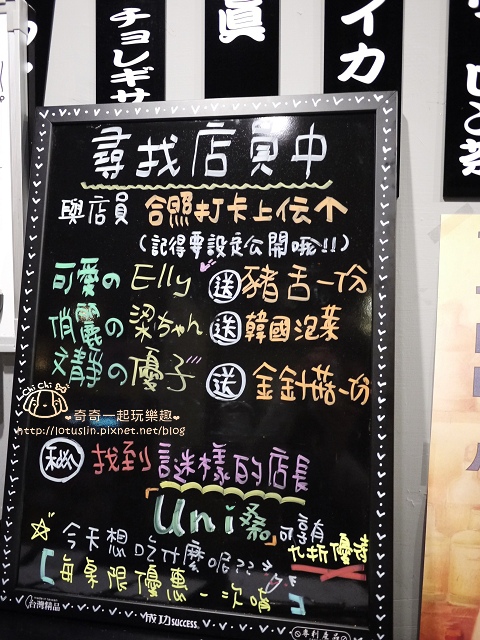 チョレギサ
眞
イカ
尋找店員中
與店員 合照打卡上伝↑
(記得要設定公開哦!!)
可愛の Elly 送 豬舌一份
俏麗の 梁ちゃん 送 韓國泡菜
文靜の 優子 送 金針菇一份
Chi Chi Boo
奇奇一起玩樂趣
http://lotuslin.pixnet.net/blog
找到 謎樣的店長
「Uni桑」
可享有
九折優待
今天想吃什麼呢???
【每桌限優惠一次唷】
台灣精品
成功 SUCCESS
專利產品